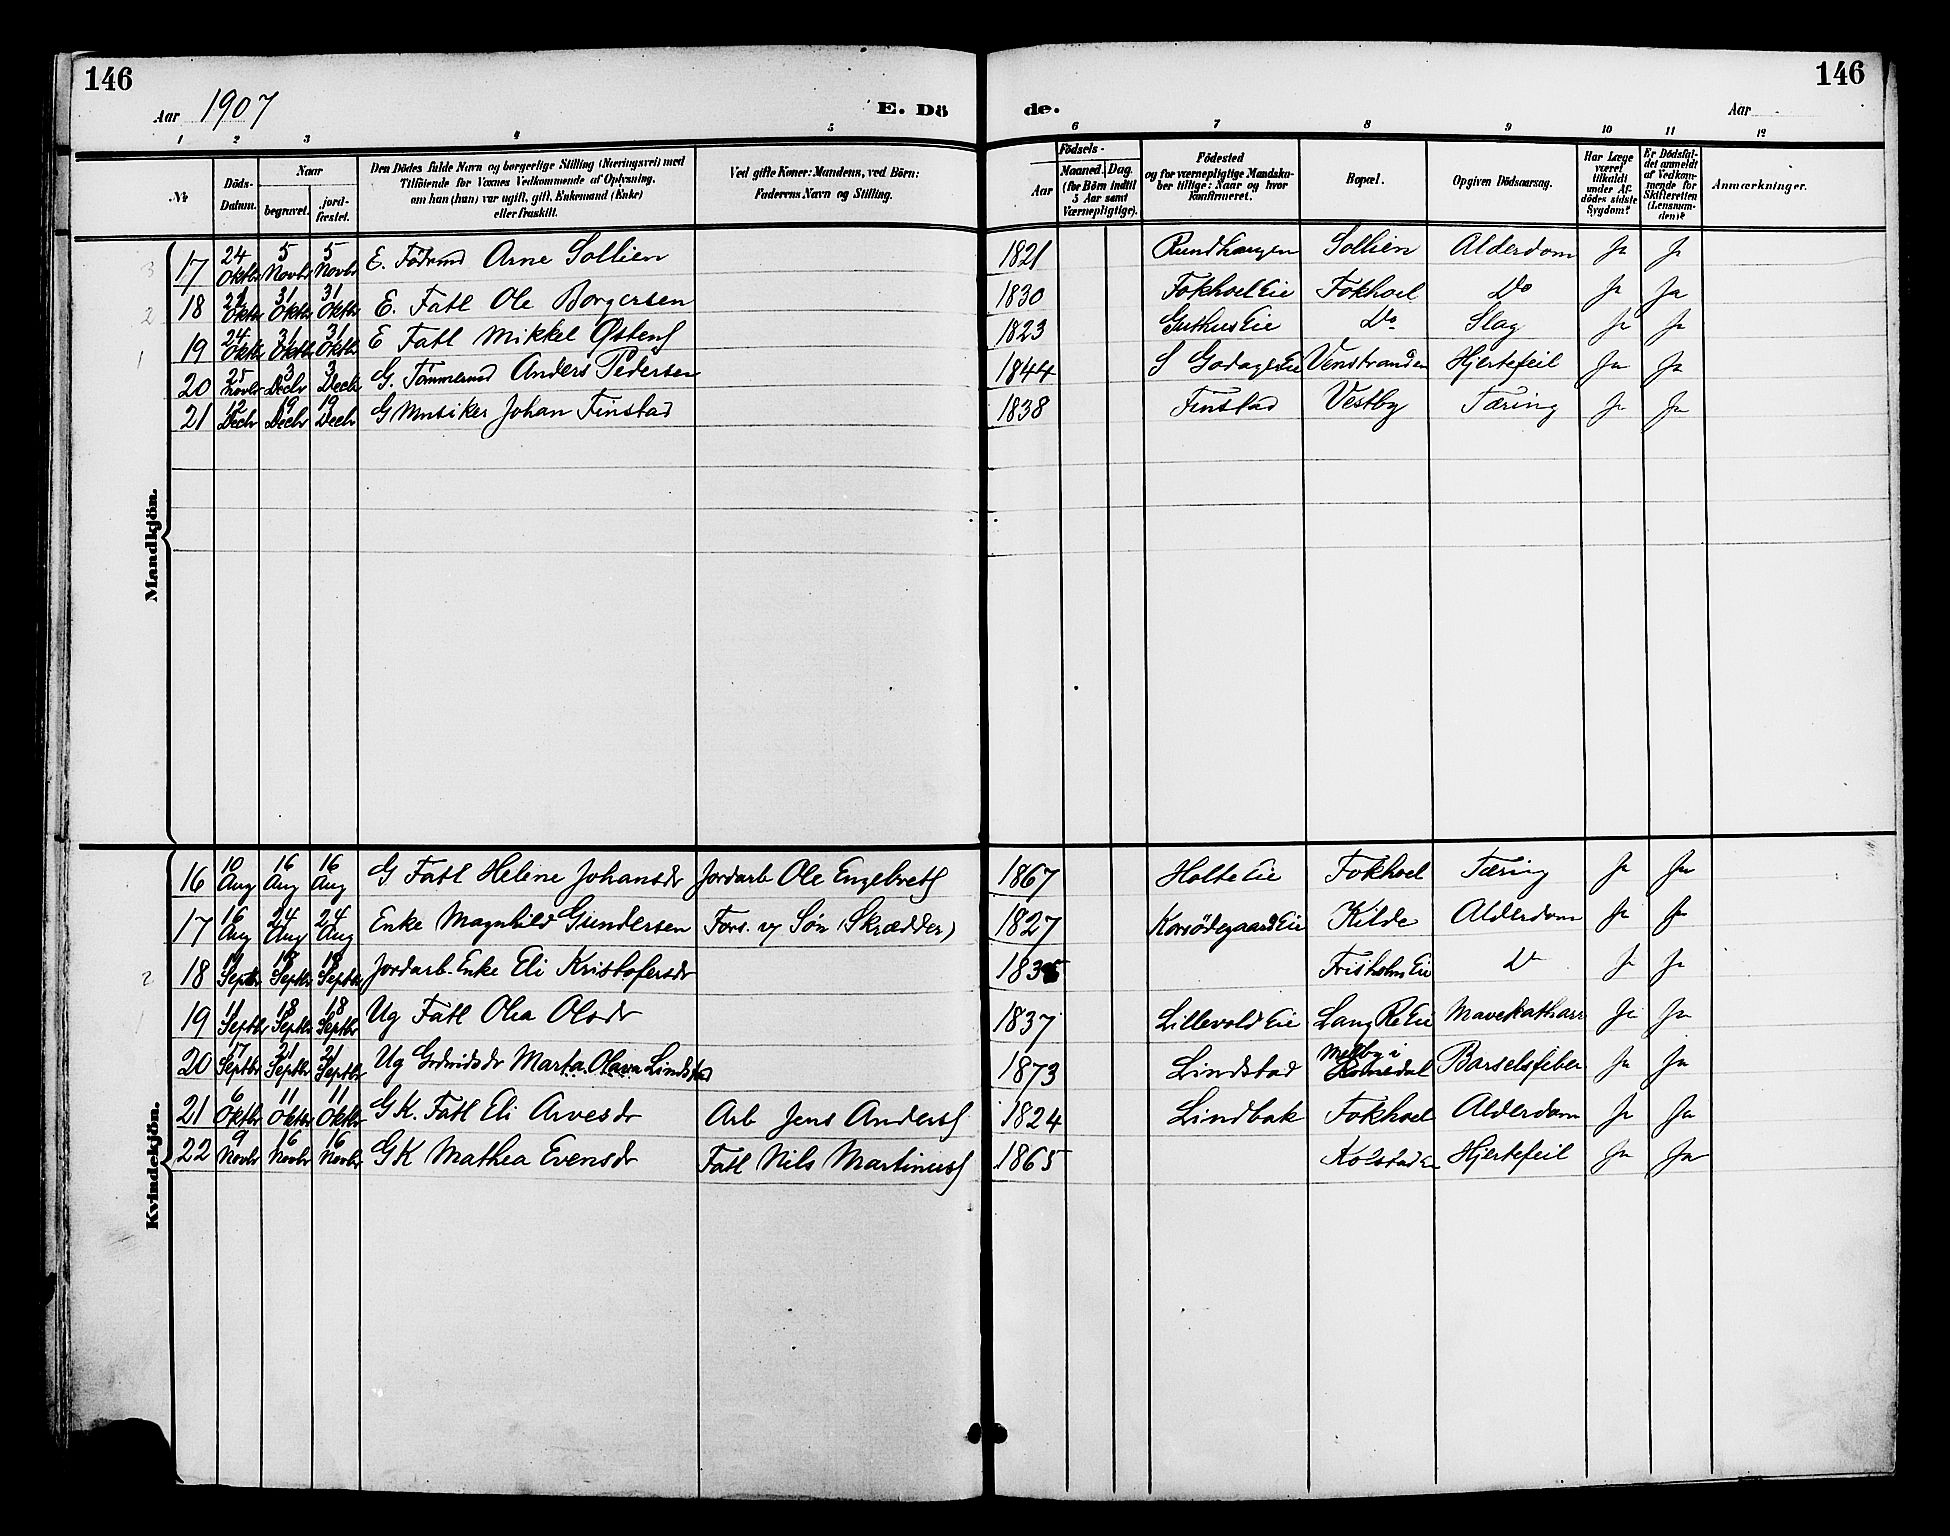 146
146
Aar 1907
E. Dö
de.
Aar
1 2 3 4 5 6 7 8 9 10 11 12
Nr
Döds-Datum.
Naar
begravet.
jord-fæstet.
Den Dödes fulde Navn og borgerlige Stilling (Næringsvei) med
Tilföiende for Voxnes Vedkommende af Oplysning,
om han (hun) var ugift, gift, Enkemand (Enke)
eller fraskilt.
Ved gifte Koner: Mandens, ved Börn:
Faderens Navn og Stilling.
Födsels-
Aar
Maaned. Dag.
(for Börn indtil
5 Aar samt
Værnepligtige).
Födested
og for værnepligtige Mandska-
ber tillige: Naar og hvor
konfirmeret.
Bopæl.
Opgiven Dödsaarsag.
Har Læge
været
tilkaldt
under Af-
dödes sidste
Sygdom?
Er Dödsfal-
det anmeldt
af Vedkom-
mende for
Skifteretten
(Lensman-
den)?
Anmærkninger.
Mandkjön.
3 17 24 Oktbr 5 Novbr 5 Novbr E. Födrmd Arne Sollien 1821 Rundhaugen Sollien Alderdom Ja Ja
2 18 Oktbr 31 Oktbr 31 Oktbr E. Fatl Ole Borgersen 1830 Fokhoel Eie Fokhoel Do Ja Ja
1 19 24 Oktbr 31 Oktbr 31 Oktbr E Fatl Mikkel Østens 1823 Guthus Eie Do Slag Ja Ja
20 25 Novbr 3 Decbr 3 Decbr G. Tømmermd Anders Pedersen 1844 S Godager Eie Venstranden Hjertefeil Ja Ja
21 12 Decbr 19 Decbr 19 Decbr G Musiker Johan Finstad 1838 Finstad Vestby Tæring Ja Ja
Kvindekjön.
16 10 Aug 16 Aug 16 Aug G Fatl Helene Johansdr Jordarb Ole Engelbrets 1867 Holte Eie Fokhoel Tæring Ja Ja
17 16 Aug 24 Aug 24 Aug Enke Magnhild Gundersen Fors. v Søn (Skrædder) 1827 Korsødegaard Eie Kilde Alderdom Ja Ja
2 18 11 Septbr 18 Septbr 18 Septbr Jordarb. Enke Eli Kristofersdr 1835 Frisholm Eie Do Ja Ja
1 19 11 Septbr 18 Septbr 18 Septbr Ug Fatl Olea Olsdr 1837 Lillevold Eie Lang Re Eie Mavekatharr Ja Ja
20 17 Septbr 21 Septbr 21 Septbr Ug Grdmdsdr Marta Olava Lindstad 1873 Lindstad Melby i Romedal Barselsfeber Ja Ja
21 6 Oktbr 11 Oktbr 11 Oktbr G K. Fatl Eli Arvesdr Arb Jens Anders 1824 Lindbak Fokhoel Alderdom Ja Ja
22 9 Novbr 16 Novbr 16 Novbr G K Mathea Evensdr Fatl Nils Martinius 1865 Kolstad Eie Hjertefeil Ja Ja